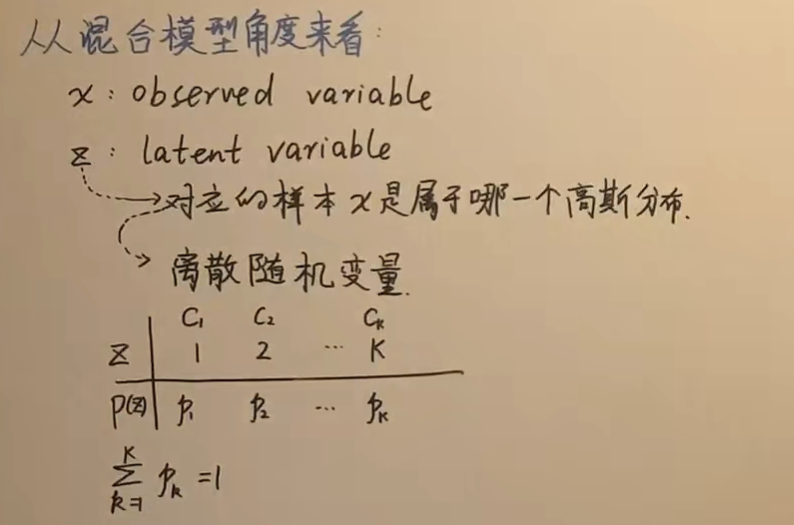 从混合模型角度来看:
x: observed variable
z: latent variable
对应的样本x是属于哪一个高斯分布.
离散随机变量.
C₁ C₂ Cₖ
z 1 2 ... K
p(z) p₁ p₂ ... pₖ
∑ₖ₌₁ᴷ pₖ = 1